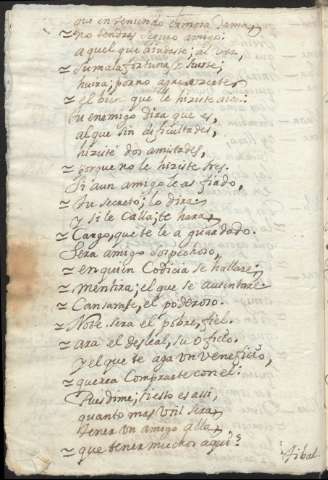 que en
no tendras seguro amigo:
a quel que
Su mala fortuna
huira; por no agradecerte
el bien que le hiziste
tu enemigo dira que es,
al que sin dificultades,
hiziste dos amistades,
porque no le hiziste tres.
Si a un amigo le as fiado,
tu secreto; lo dira
y si le calla; te hara
Cargo, que te le a guardado.
Sera amigo sospechoso,
en quien Codicia se hallare;
mentira; el que se
Cansarase, el poderoso.
No te sera el pobre, fiel.
ara el desleal, su oficio.
y el que te aga un veneficio,
querra Comprarte con el:
Pues dime; si esto es assi,
quanto mas util sera
tener un amigo alla
que tener muchos aqui?